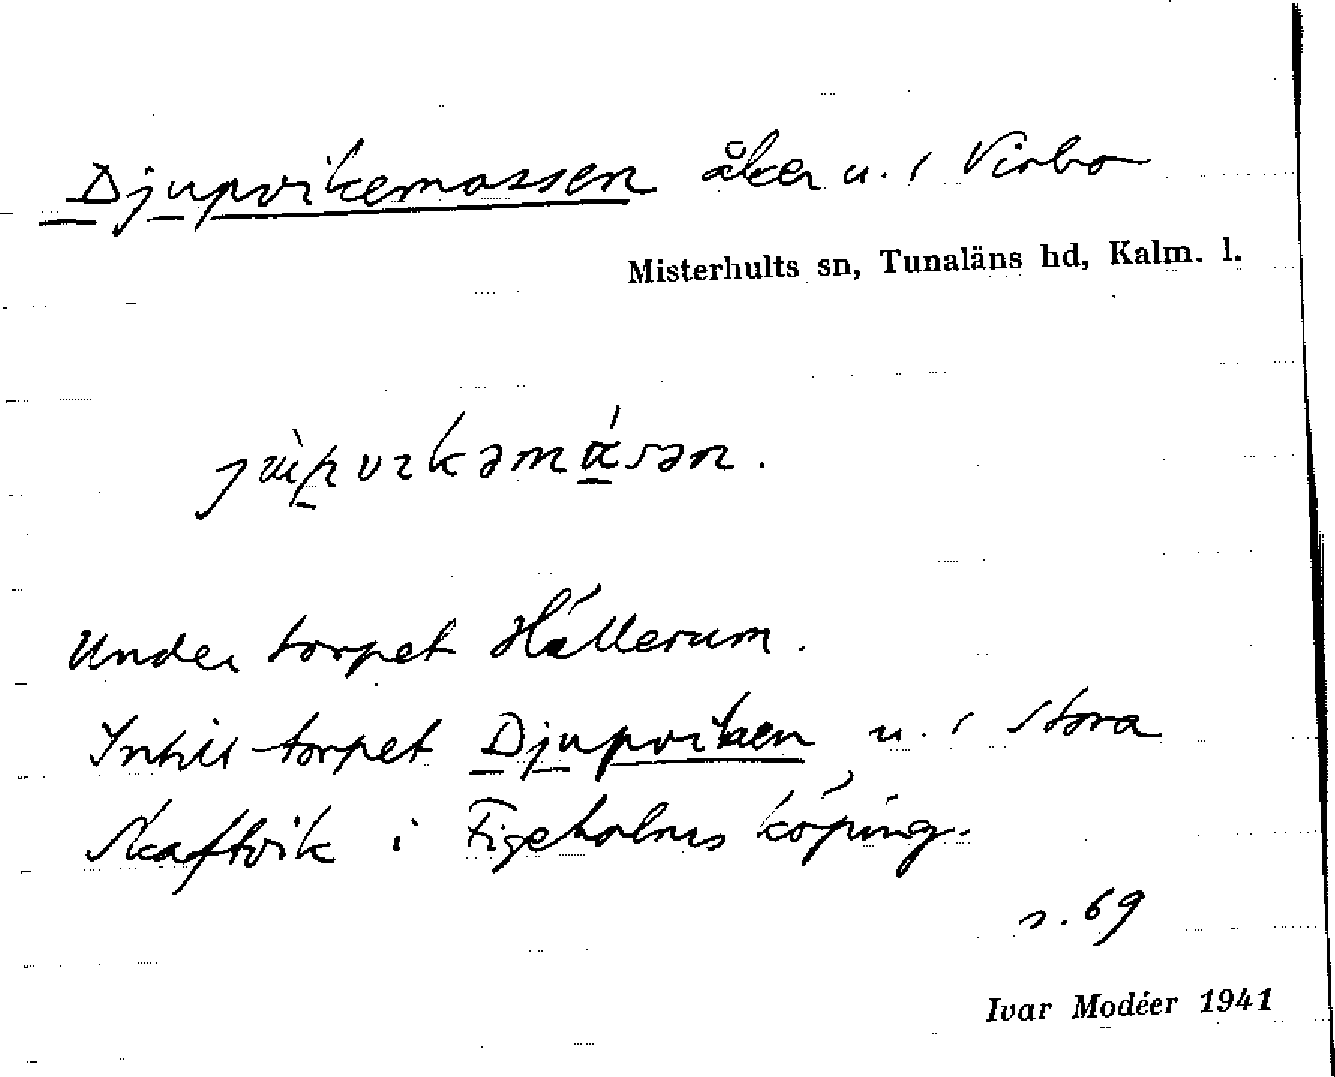 Djupvikemossen åker u. / Virbo
Misterhults sn, Tunaläns hd, Kalm. l.
Under torpet Hällerum.
Intill torpet Djupviken u. / Stora
Skaftvik i Figeholms köping.
s. 69
Ivar Modéer 1941